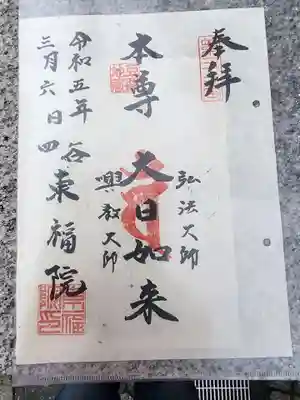 奉拝
弘法大師
本尊 大日如来
興教大師
四谷 東福院
令和五年
三月六日